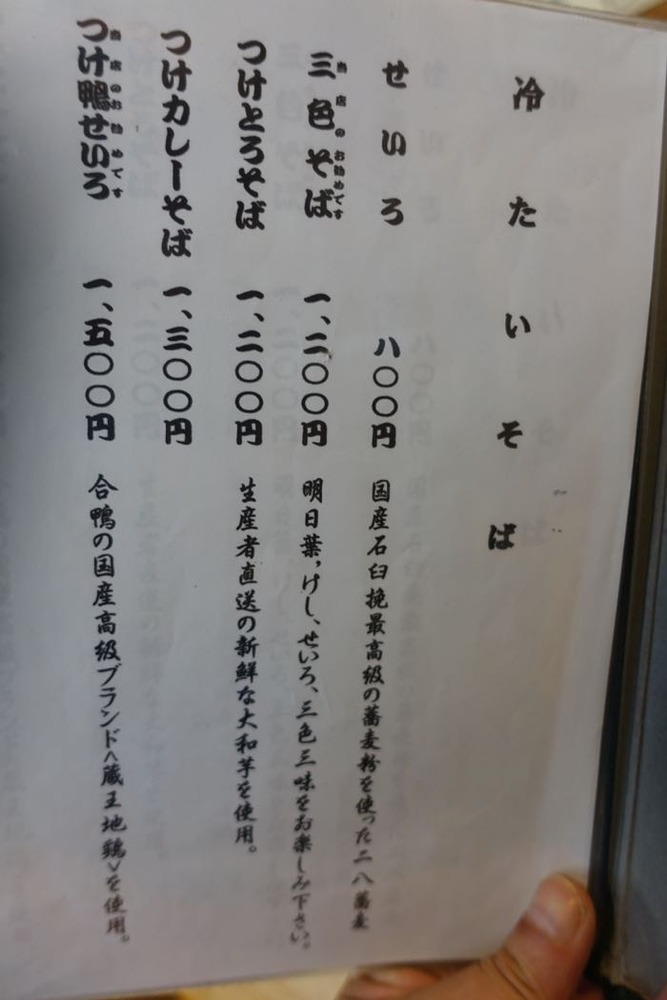 冷たいそば
せいろ 八〇〇円 国産石臼挽最高級の蕎麦粉を使った二八蕎麦
三色そば 一、二〇〇円 明日葉、けし、せいろ、三色三味をお楽しみ下さい。
当店のお勧めです
つけとろそば 一、二〇〇円 生産者直送の新鮮な大和芋を使用。
つけカレーそば 一、三〇〇円
つけ鴨せいろ 一、五〇〇円 合鴨の国産高級ブランド<蔵王地鶏>を使用。
当店のお勧めです